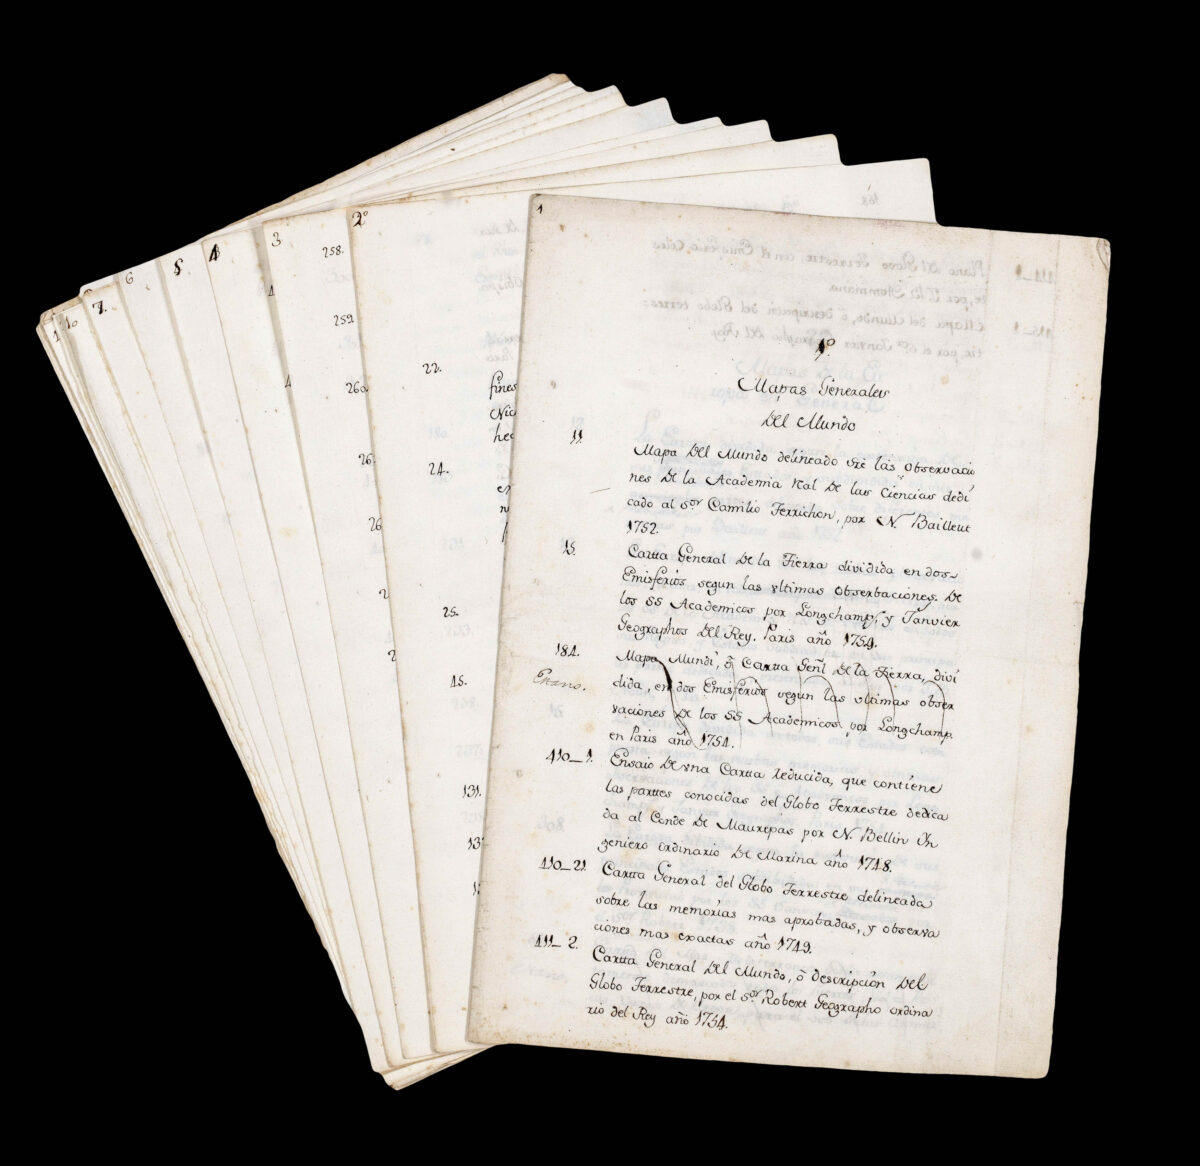 1
1º
Mapas Generales
Del Mundo
11. Mapa Del Mundo delineado sre las observacio
nes De la Academia Real De las Ciencias dedi
cado al Sor Camilio Terrichon, por N Bailleut
1752.
15. Cartta General De la Tierra dividida en dos
Emisferios segun las ultimas Obserbaciones. De
los SS Academicos por Longchamp, y Janvier
Geographos Del Rey. Paris año 1754.
184. Mapa Mundi, ô Cartta Genl De la Tierra, divi
dida, en dos Emisferios segun las ultimas obser
vaciones De los SS Academicos, por Longchamp
en Paris año 1754.
410_1. Ensaio De una Cartta reducida, que contiene
las parttes conocidas del Globo Terrestre dedica
da al Conde De Maurepas por N. Bellin Yn
geniero ordinario De Marina año 1748.
410_21. Cartta General del Globo Terrestre delineada
sobre las memorias mas aprobadas, y observa
ciones mas exactas año 1749.
411_2. Cartta General Del Mundo, ô descripcion Del
Globo Terrestre, por el Sor Robert Geographo ordina
rio del Rey año 1754.
2º
22.
fines
Nic
hec
24.
25.
45.
131.
3
258.
259
260
4
5
6
7.
10